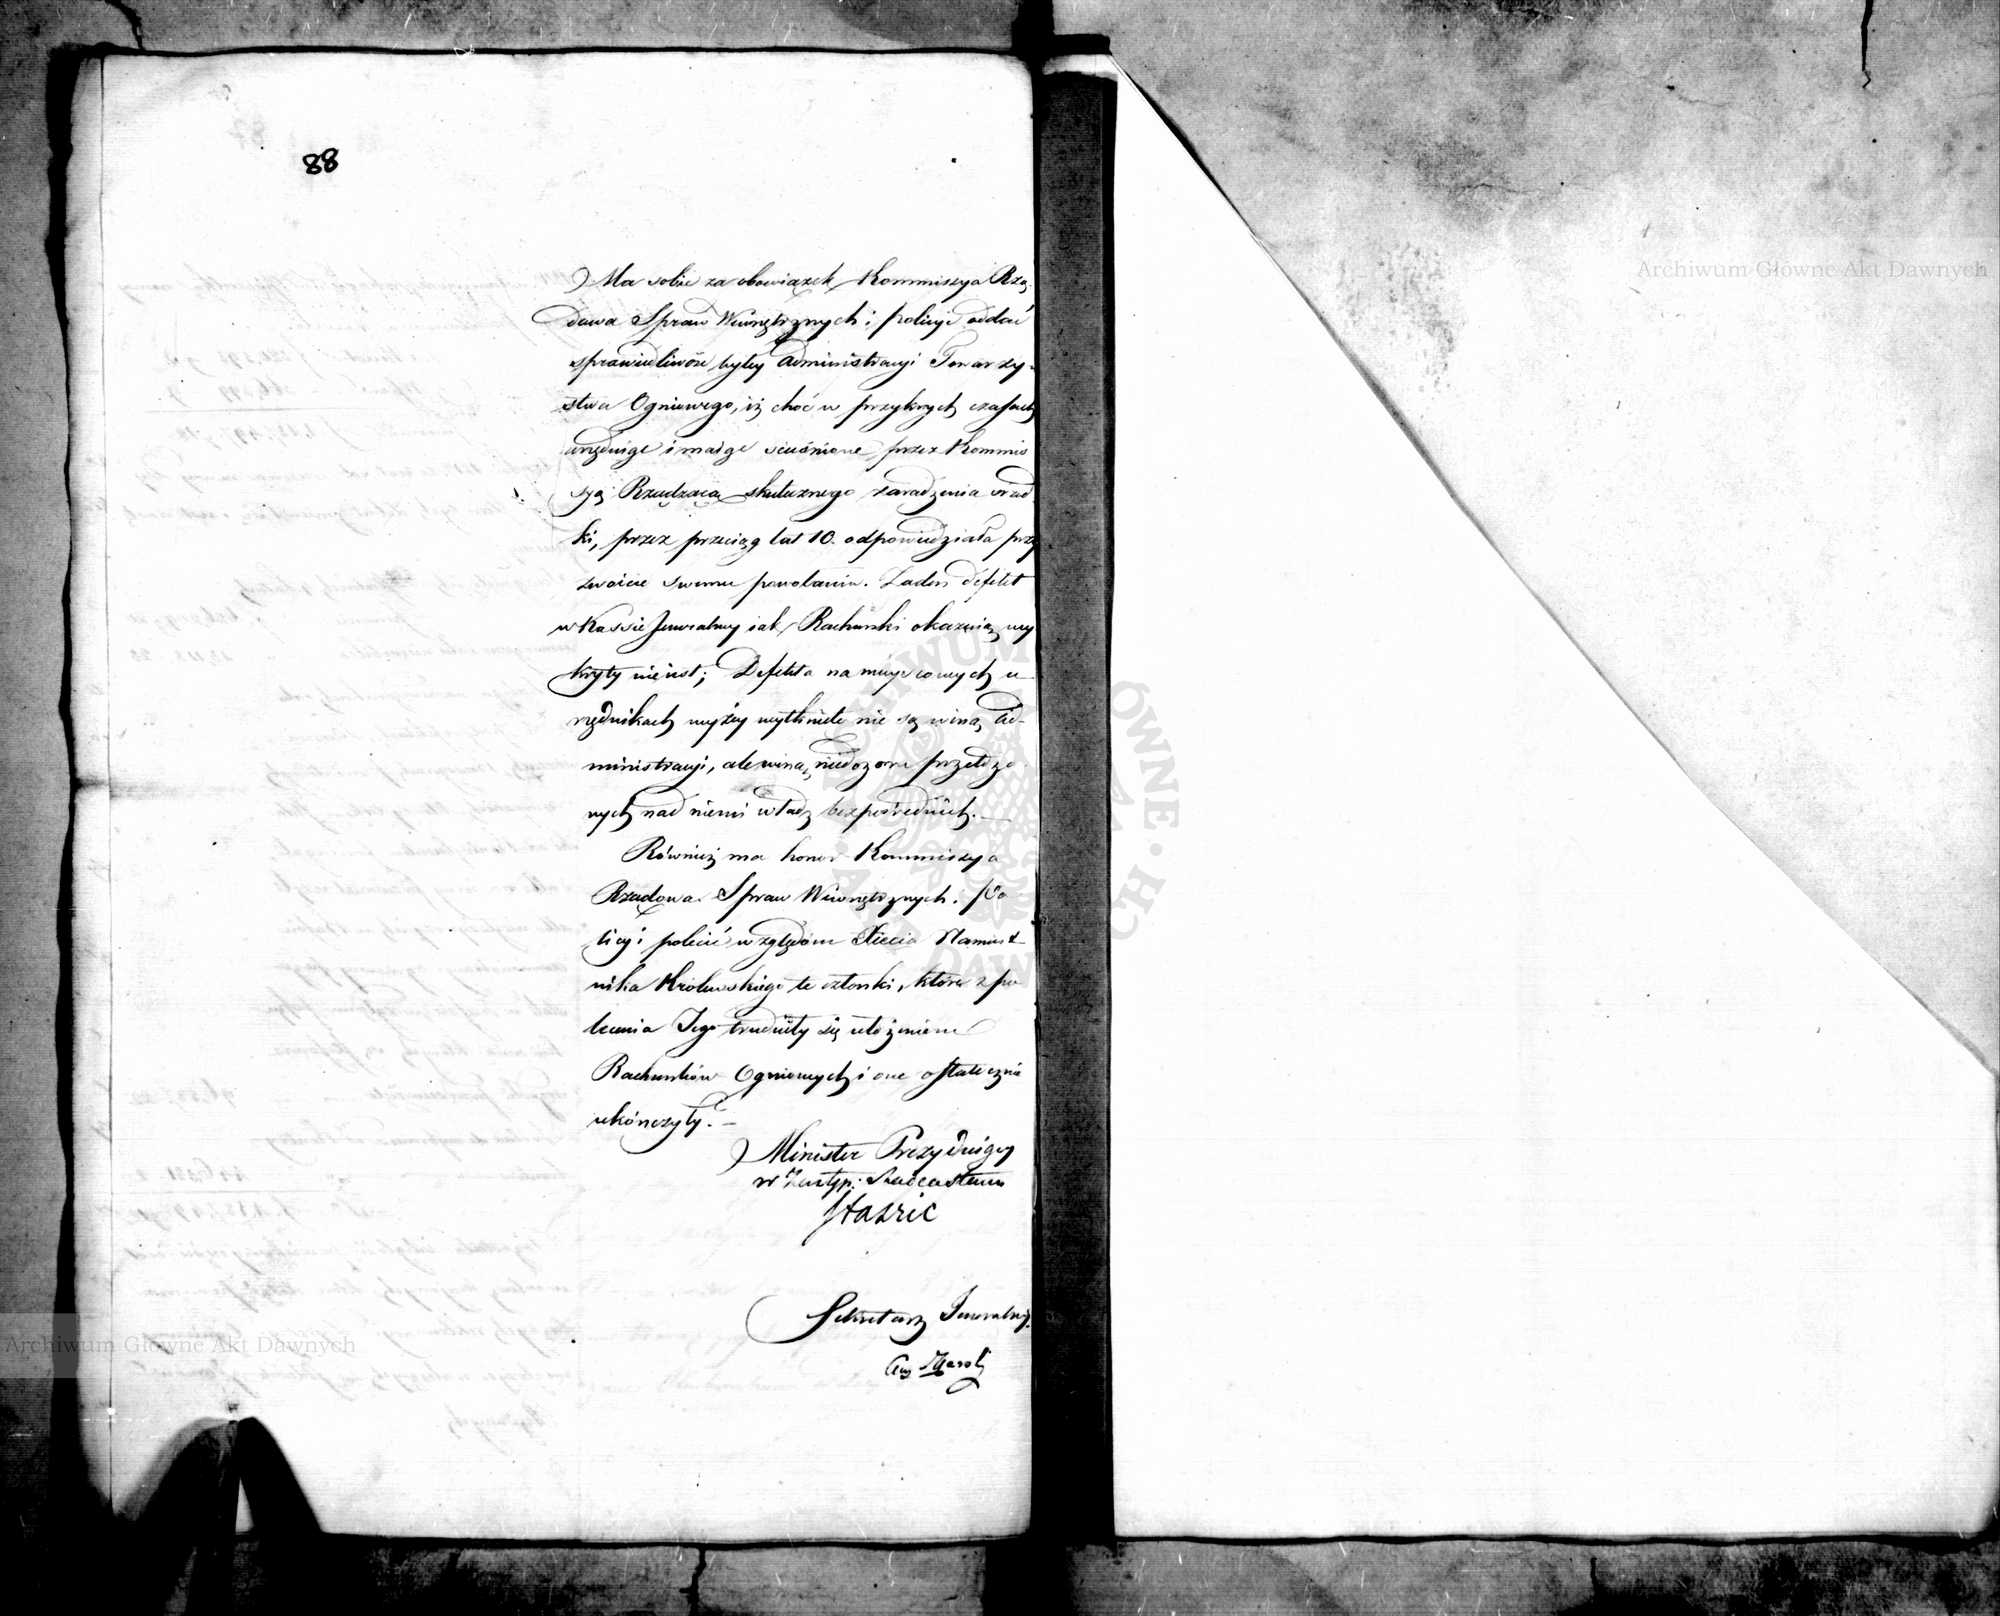 88
Ma sobie za obowiązek Kommissya Rzą-
dowa Spraw Wewnętrznych i policyi oddać
sprawiedliwość byłey Administracyi Towarzy-
stwa Ogniowego, iż choć w przykrych czasach
urzęduiąc i maiąc scieśnione przez Kommis
syą Rządzącą skutecznego zaradzenia srzod-
ki, przez przeciąg lat 10. odpowiedziała przy
zwoicie swemu powołaniu. Żaden defekt
w Kassie Jeneralney iak Rachunki okazuią wy
kryty nie iest; Defekta na mieyscowych u-
rzędnikach wyżey wytknięte nie są winą Ad-
ministracyi, ale winą niedozoru przełożo-
nych nad niemi władz bezpośrednich. —
Również ma honor Kommissya
Rządowa Spraw Wewnętrznych i Po-
licyi polecić względom Xięcia Namiest-
nika Królewskiego te członki, które z po-
lecenia Jego trudniły się ułożeniem
Rachunków Ogniowych i one ostatecznie
ukończyły. —
Minister Prezyduiący
w Zastęp: Radca Stanu
Staszic
Sekretarz Jeneralny.
Aug Karski
Archiwum Główne Akt Dawnych
Archiwum Główne Akt Dawnych